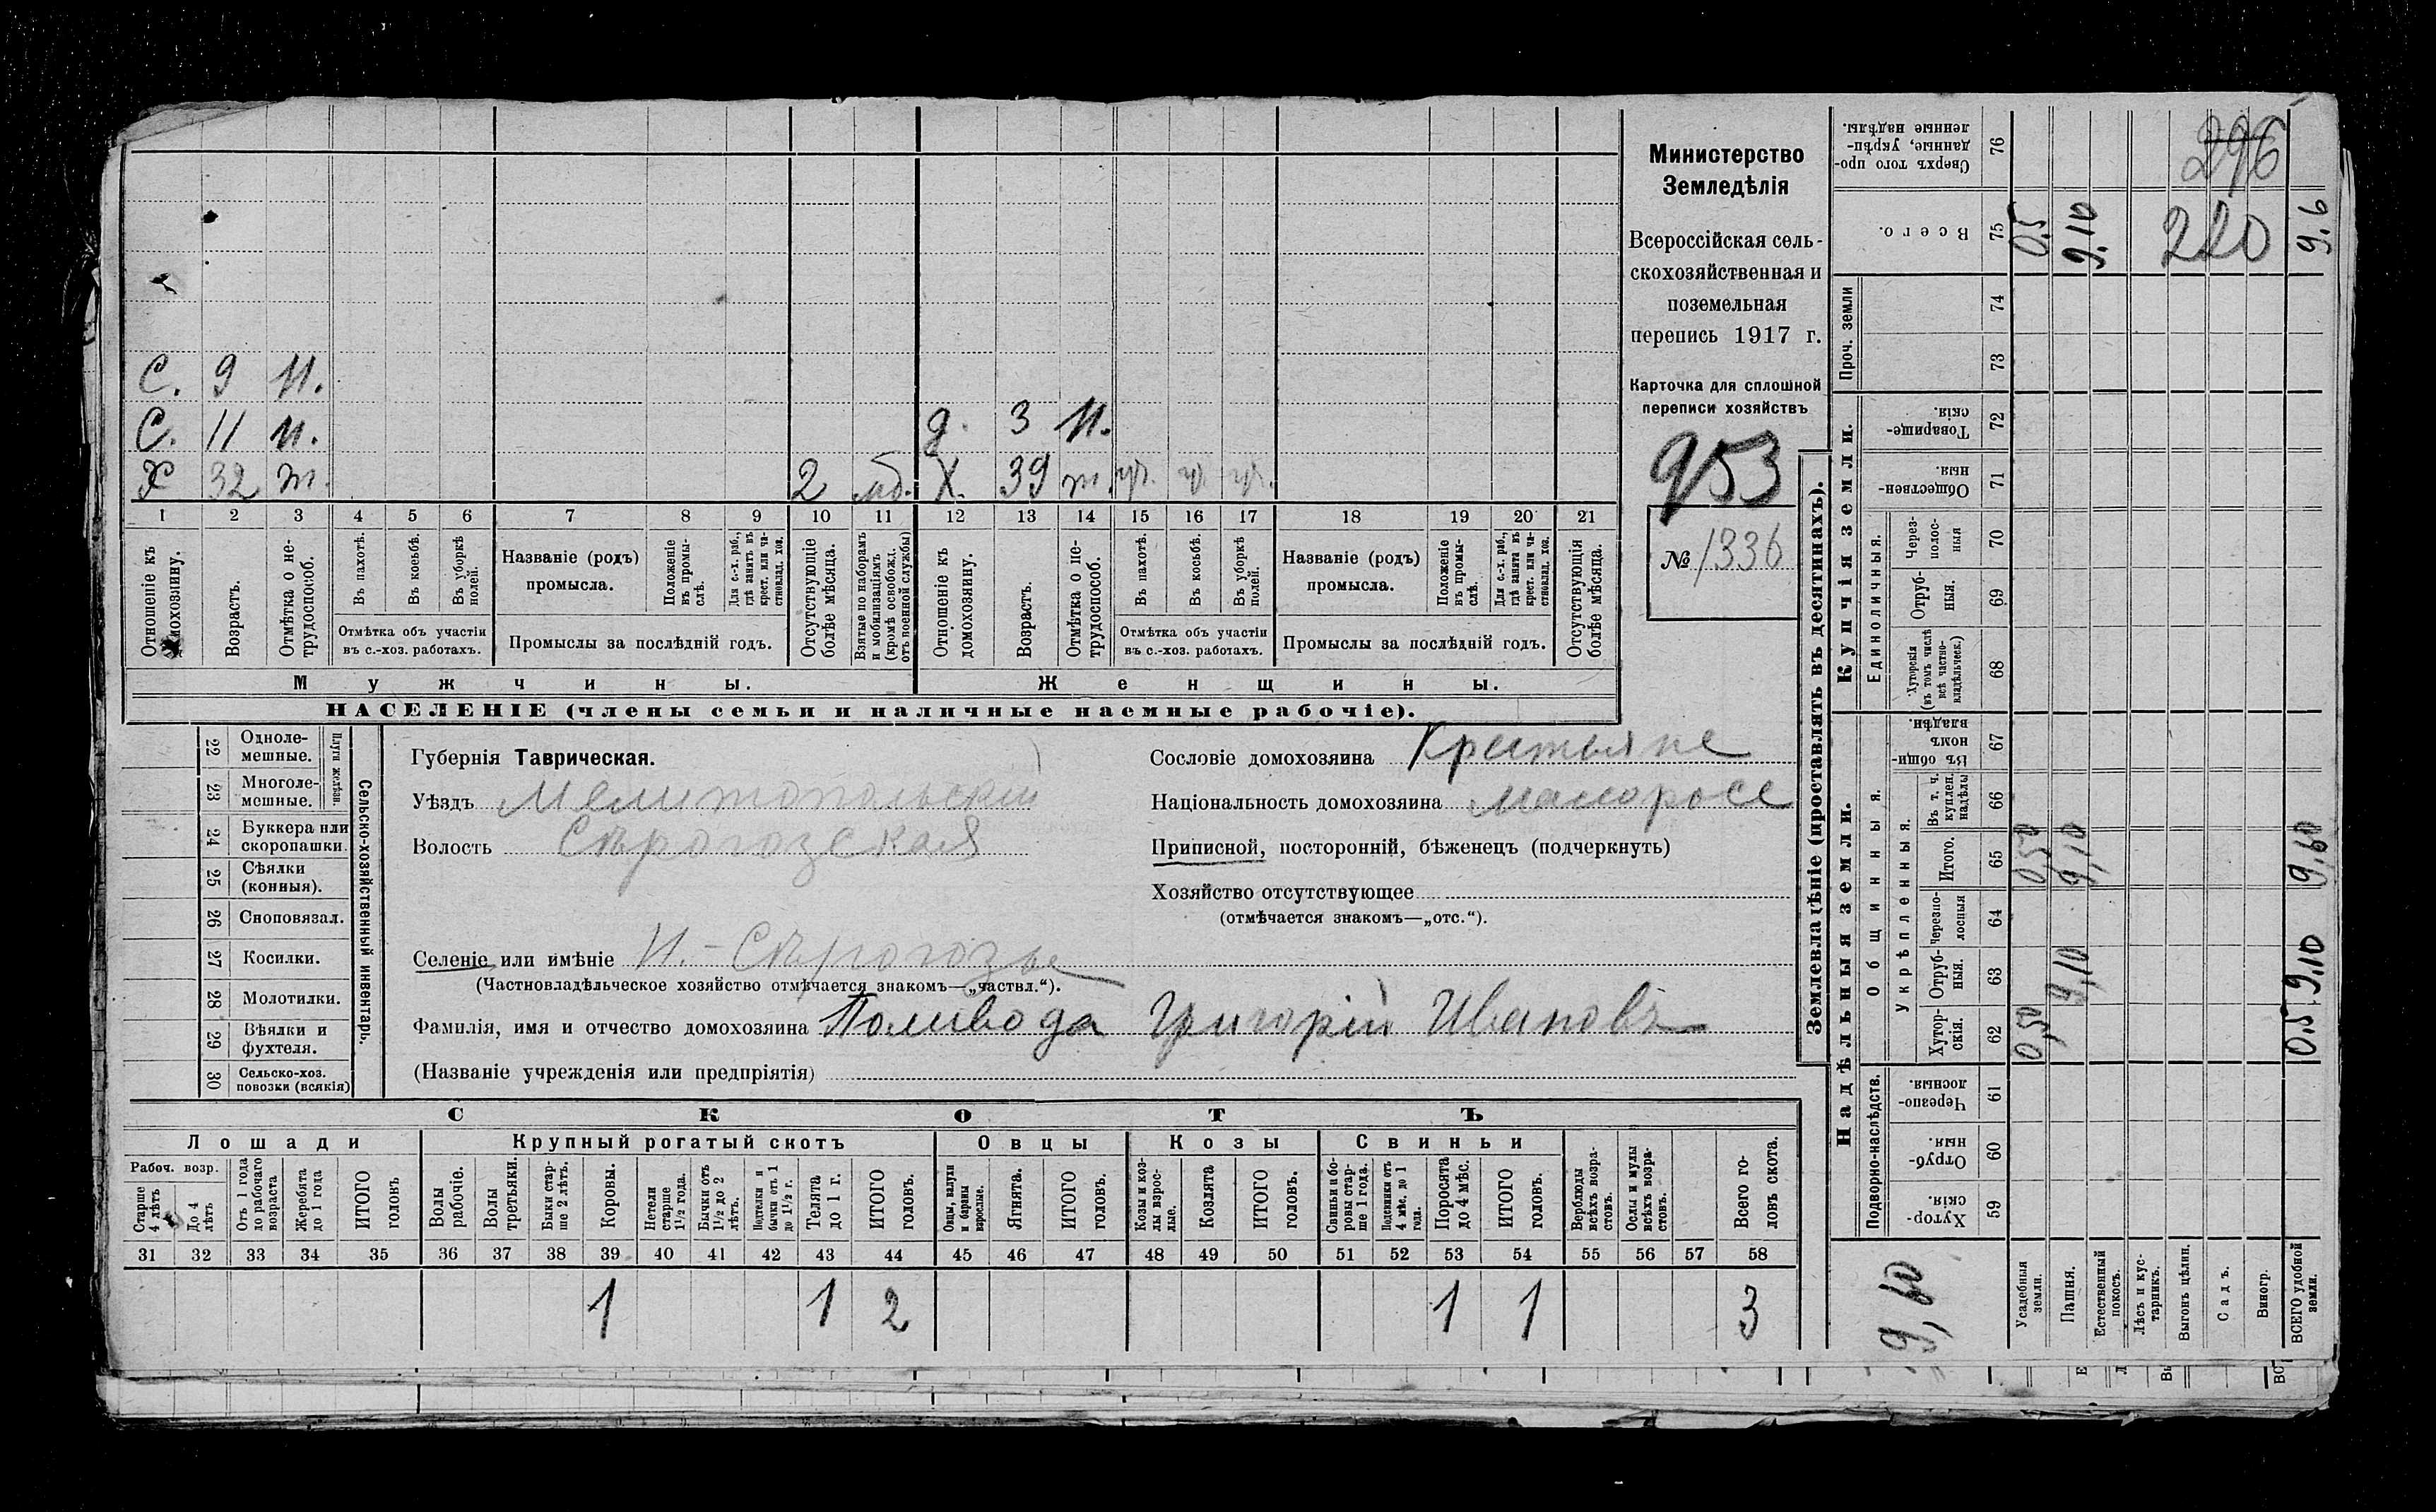 С. 9 н.
С. 11 н. д. 3 н.
Х 32 т. 2 мб. Х. 39 т. гр. гр. гр.
1 2 3 4 5 6 7 8 9 10 11 12 13 14 15 16 17 18 19 20 21
Отношеніе къ домохозяину.
Возрастъ.
Отмѣтка о нетрудоспособ.
Въ пахотѣ.
Въ косьбѣ.
Въ уборкѣ полей.
Отмѣтка объ участіи въ с.-хоз. работахъ.
Названіе (родъ) промысла.
Положеніе въ промыслѣ.
Для с.-х. раб., гдѣ занятъ въ крест. или частновлад. хоз.
Промыслы за послѣдній годъ.
Отсутствующіе болѣе мѣсяца.
Взятые по наборамъ и мобилизаціямъ (кромѣ освобожд. отъ военной службы)
Отношеніе къ домохозяину.
Возрастъ.
Отмѣтка о нетрудоспособ.
Въ пахотѣ.
Въ косьбѣ.
Въ уборкѣ полей.
Отмѣтка объ участіи въ с.-хоз. работахъ.
Названіе (родъ) промысла.
Положеніе въ промыслѣ.
Для с.-х. раб., гдѣ занята въ крест. или частновлад. хоз.
Промыслы за послѣдній годъ.
Отсутствующія болѣе мѣсяца.
Мужчины. Женщины.
НАСЕЛЕНІЕ (члены семьи и наличные наемные рабочіе).
Министерство
Земледѣлія
Всероссійская сель-
скохозяйственная и
поземельная
перепись 1917 г.
Карточка для сплошной
переписи хозяйствъ
953
№ 1336
22 Одноле-
мешные.
23 Многоле-
мешные.
Плуги желѣзн.
24 Буккера или
скоропашки.
25 Сѣялки
(конныя).
26 Сноповязал.
27 Косилки.
28 Молотилки.
29 Вѣялки и
фухтеля.
30 Сельско-хоз.
повозки (всякія)
Сельско-хозяйственный инвентарь.
Губернія Таврическая.
Уѣздъ Мелитопольскій
Волость Сѣрогозская
Селеніе или имѣніе Н.-Сѣрогозы
(Частновладѣльческое хозяйство отмѣчается знакомъ—„частвл.“).
Фамилія, имя и отчество домохозяина Поливода Григорій Ивановъ
(Названіе учрежденія или предпріятія)
Сословіе домохозяина Крестьяне
Національность домохозяина малоросс
Приписной, посторонній, бѣженецъ (подчеркнуть)
Хозяйство отсутствующее
(отмѣчается знакомъ—„отс.“).
СКОТЪ
Лошади Крупный рогатый скотъ Овцы Козы Свиньи
Рабоч. возр.
Старше 4 лѣтъ
До 4 лѣтъ
Отъ 1 года до рабочаго возраста
Жеребята до 1 года
ИТОГО головъ
Волы рабочіе.
Волы третьяки.
Быки старше 2 лѣтъ.
Коровы.
Нетели старше 1½ года.
Бычки отъ 1½ до 2 лѣтъ.
Подтелки и бычки отъ 1 до 1½ г.
Телята до 1 г.
ИТОГО головъ.
Овцы, валухи и бараны взрослые.
Ягнята.
ИТОГО головъ.
Козы и козлы взрослые.
Козлята
ИТОГО головъ.
Свиньи и боровы старше 1 года.
Подсвинки отъ 4 мѣс. до 1 года.
Поросята до 4 мѣс.
ИТОГО головъ.
Верблюды всѣхъ возрастовъ.
Ослы и мулы всѣхъ возрастовъ.
Всего головъ скота.
31 32 33 34 35 36 37 38 39 40 41 42 43 44 45 46 47 48 49 50 51 52 53 54 55 56 57 58
1 1 2 1 1 3
Землевладѣніе (проставлять въ десятинахъ).
Надѣльныя земли. Купчія земли.
Подворно-наслѣдств. Общинныя. Единоличныя. Проч. земли
Укрѣпленныя.
Хуторскія. 59
Отрубныя. 60
Черезполосныя. 61
Хуторскія. 62
Отрубныя. 63
Черезполосныя 64
Итого. 65
Въ т. ч. куплен. надѣлы 66
Въ общиномъ владѣн. 67
Хуторскія (въ томъ числѣ всѣ частновладѣльческ.) 68
Отрубныя. 69
Черезполосныя 70
Общественныя. 71
Товарищескія. 72
73
74
Всего. 75
Сверхъ того проданные, укрѣпленные надѣлы. 76
9,60
Усадебныя земли. 0,50 0,50 0.5
Пашня. 9,10 9,10 9.10
Естественный покосъ.
Лѣсъ и кустарникъ.
Выгонъ цѣлин.
Садъ.
Виногр.
ВСЕГО удобной земли. 0.5 9.10 9,60 9.6
296
220